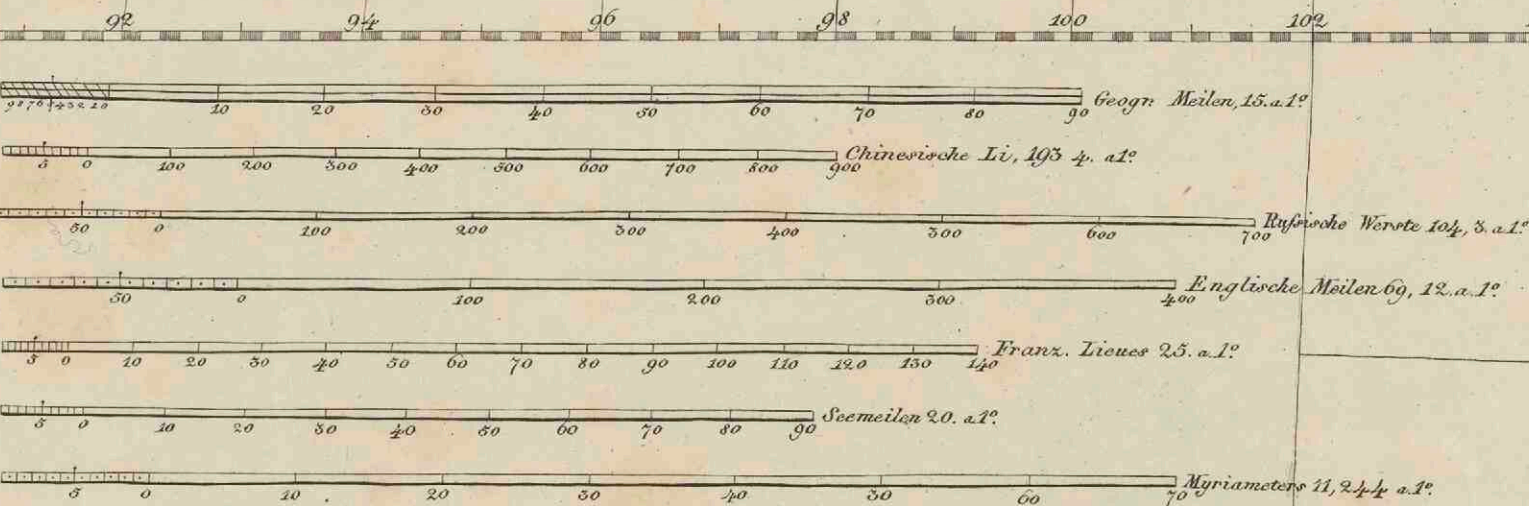 92 94 96 98 100 102
9 8 7 6 5 4 3 2 1 0 10 20 30 40 50 60 70 80 90 Geogr. Meilen, 15. a.1°
5 0 100 200 300 400 500 600 700 800 900 Chinesische Li, 193 4. a1°
50 0 100 200 300 400 500 600 700 Russische Werste 104, 3. a.1°
50 0 100 200 300 400 Englische Meilen 69, 12. a.1°
5 0 10 20 30 40 50 60 70 80 90 100 110 120 130 140 Franz. Lieues 25. a.1°
5 0 10 20 30 40 50 60 70 80 90 Seemeilen 20. a.1°
5 0 10 20 30 40 50 60 70 Myriameters 11,244 a.1°